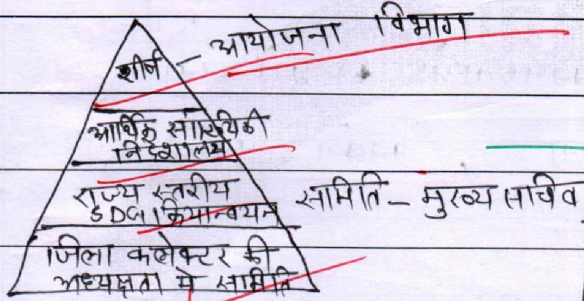 शीर्ष - आयोजना विभाग
आर्थिक सांख्यिकी
निदेशालय
राज्य स्तरीय
SDG क्रियान्वयन समिति - मुख्य सचिव
जिला कलेक्टर की
अध्यक्षता मे समिति